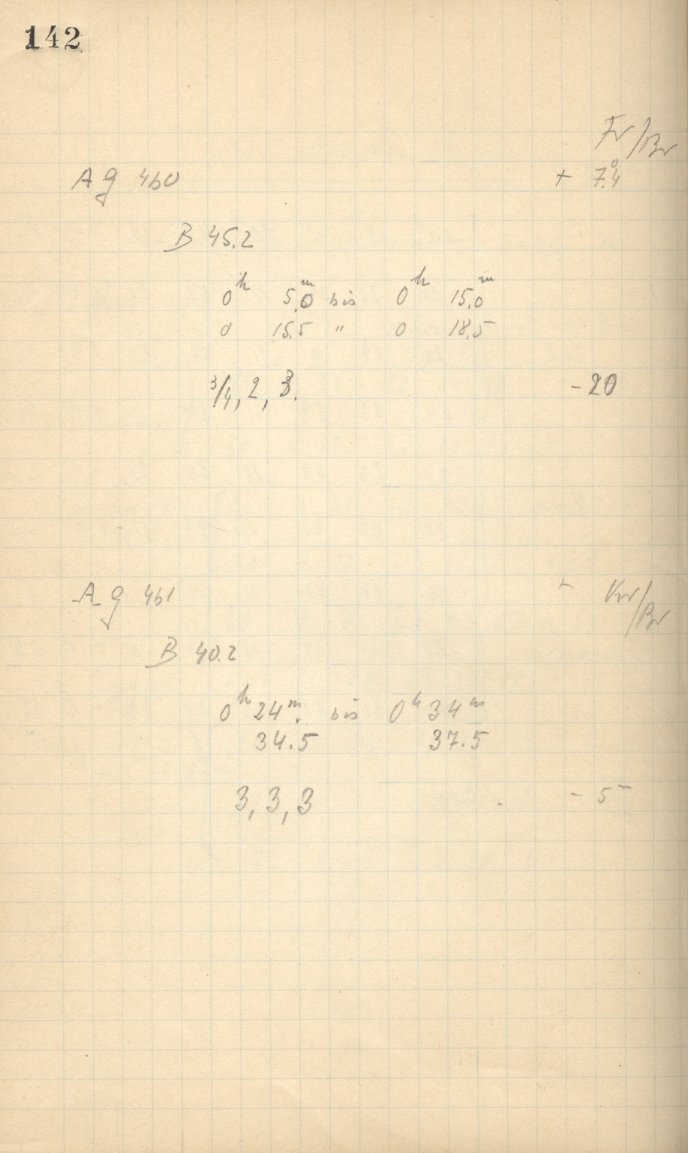 142
Fr/Br
A g 460 + 7.°4
B 45.2
0h 5.0m bis 0h 15.0m
0 15.5 " 0 18.5
3/4, 2, 3. -20
A g 461 Kr/Br
B 40.2
0h 24m. bis 0h 34m
34.5 37.5
3, 3, 3 - 5